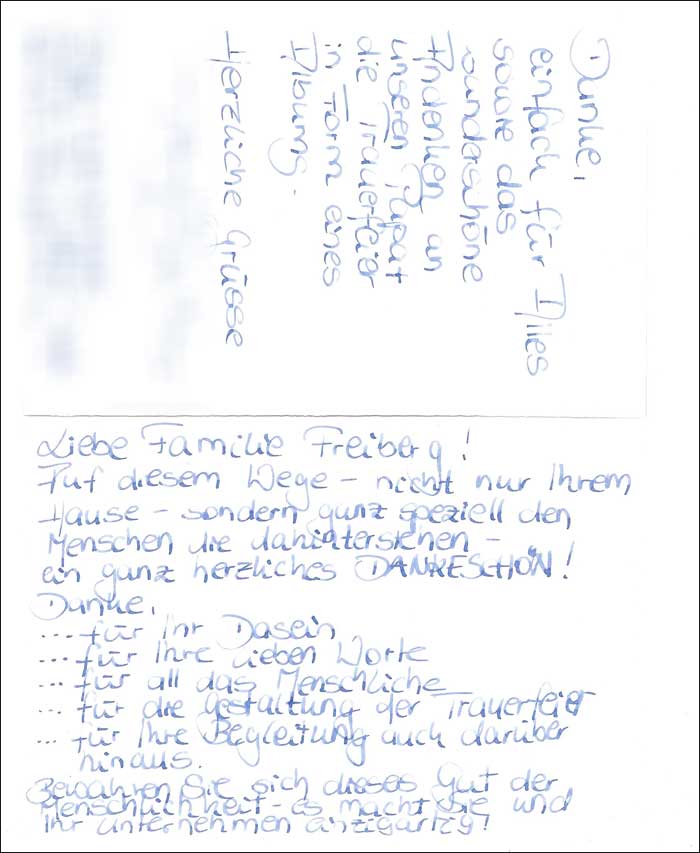 Danke,
einfach für Alles
sowie das
wunderschöne
Andenken an
unseren Papa t
die Trauerfeier
in Form eines
Albums.
Herzliche Grüsse
Liebe Familie Freiberg!
Auf diesem Wege – nicht nur Ihrem
Hause – sondern ganz speziell den
Menschen die dahinterstehen –
ein ganz herzliches DANKESCHÖN!
Danke,
... für Ihr Dasein
... für Ihre lieben Worte
... für all das Menschliche
... für die Gestaltung der Trauerfeier
... für Ihre Begleitung auch darüber
hinaus.
Bewahren Sie sich dieses Gut der
Menschlichkeit – es macht Sie und
Ihr Unternehmen einzigartig!